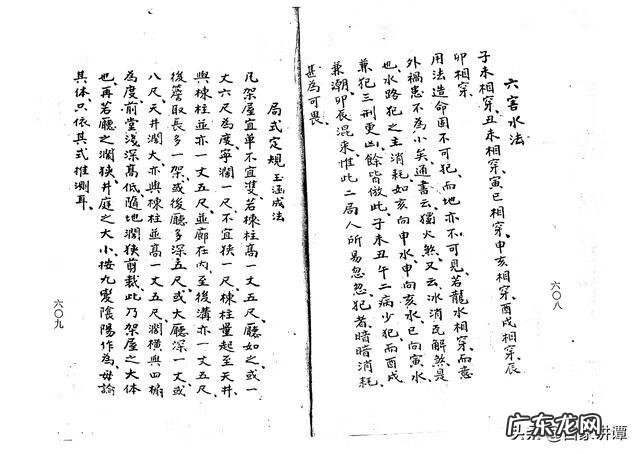 六害水法
子未相穿、丑未相穿、寅巳相穿、申亥相穿、酉戌相穿、辰
卯相穿
用法造命固不可犯、而地亦不可見、若龍水相穿、而意
外禍患不為小矣、通書云獨火煞、又云冰消瓦解煞是
也、水路犯之主消耗、如亥向申水、申向亥水、巳向寅水、
兼犯三刑更凶、餘皆倣此、子未丑午二病少犯、而酉戌
兼潮、卯辰混来、惟此二局人所易忽、犯者、暗暗消耗、
甚為可畏、
六〇八
局式定規 玉函成法
凡架屋宜单不宜雙、若棟柱高一丈五尺、廳如之、或一
丈六尺為度、寧濶一尺、不宜狭一尺、棟柱量起至天井
與棟柱並亦一丈五尺、並廊在内、至後溝亦一丈五尺、
後簷取長多一架、或後廳多深五尺、或大廳深一丈或
八尺、天井濶大亦與棟柱並高一丈五尺、濶横與四
為度、前堂浅深高低、隨地濶狭剪裁、此乃架屋之大体
也、再若廳之濶狭、井庭之大小、按九変陰陽作為、毋論
其体、只依其式推測耳、
六〇九
广东龙网
头条 @百家讲谭